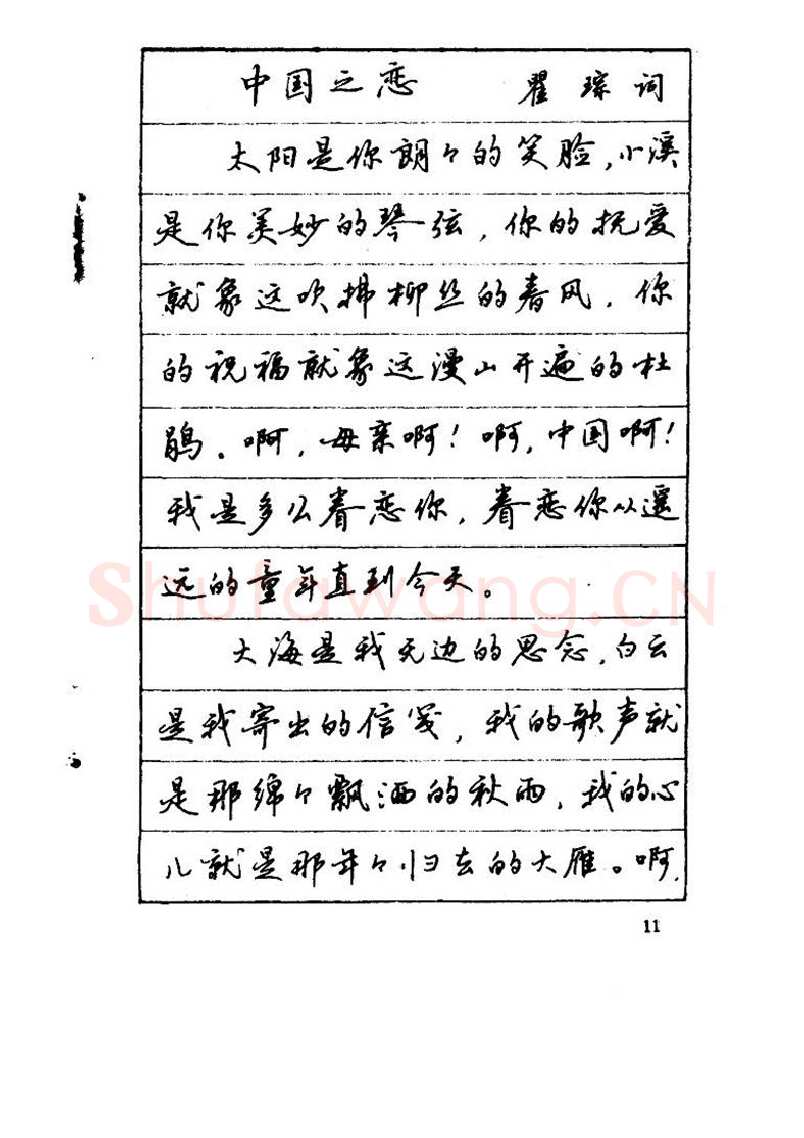 中国之恋 瞿琮词
太阳是你朗々的笑脸，小溪
是你美妙的琴弦，你的抚爱
就象这吹拂柳丝的春风，你
的祝福就象这漫山开遍的杜
鹃。啊，母亲啊！啊，中国啊！
我是多么眷恋你，眷恋你从遥
远的童年直到今天。
大海是我无边的思念，白云
是我寄出的信笺，我的歌声就
是那绵々飘洒的秋雨，我的心
儿就是那年々归去的大雁。啊，
11
Shufawang.CN